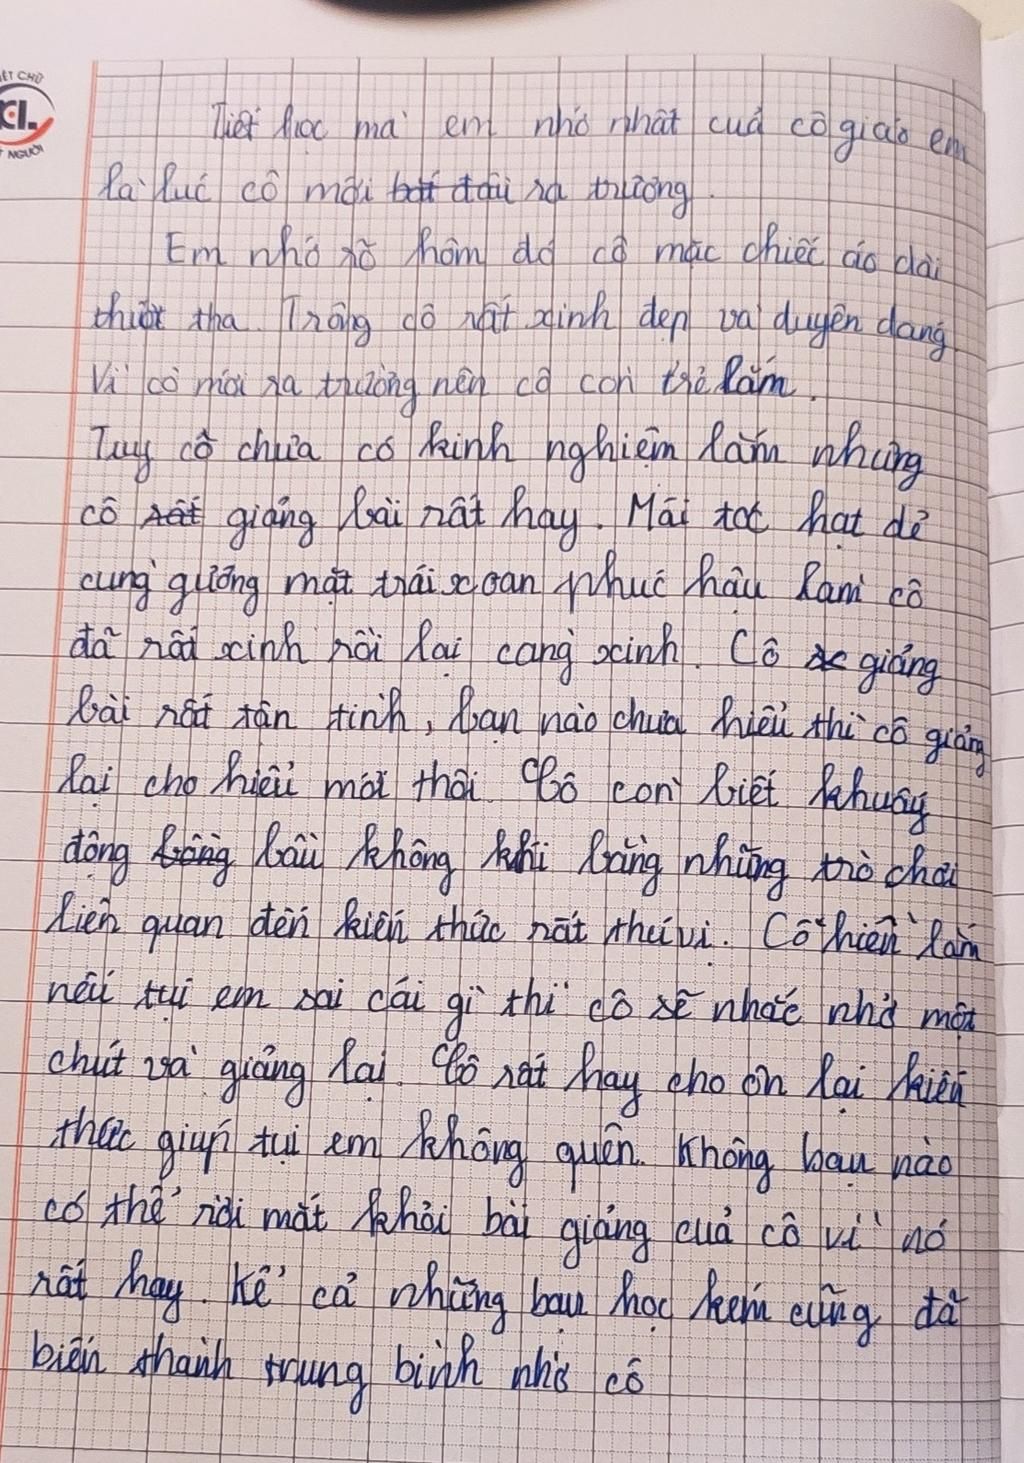 ẾT CHỮ
KL
T NGƯỜI
Tiết học mà em nhớ nhất của cô giáo em
là lúc cô mới bắt đầu ra trường.
Em nhớ rõ hôm đó cô mặc chiếc áo dài
thướt tha. Trông cô rất xinh đẹp và duyên dáng
Vì cô mới ra trường nên cô còn trẻ lắm.
Tuy cô chưa có kinh nghiệm lắm nhưng
cô rất giảng bài rất hay. Mái tóc hạt dẻ
cùng gương mặt trái xoan phúc hậu làm cô
đã rất xinh rồi lại càng xinh. Cô giảng
bài rất tận tình, bạn nào chưa hiểu thì cô giảng
lại cho hiểu mới thôi. Cô còn biết khuấy
động bầu không khí bằng những trò chơi
liên quan đến kiến thức rất thú vị. Cô hiền lắm
nếu tụi em sai cái gì thì cô sẽ nhắc nhở một
chút và giảng lại. Cô rất hay cho ôn lại kiến
thức giúp tụi em không quên. Không bạn nào
có thể rời mắt khỏi bài giảng của cô vì nó
rất hay. Kể cả những bạn học kém cũng đã
biến thành trung bình nhờ cô